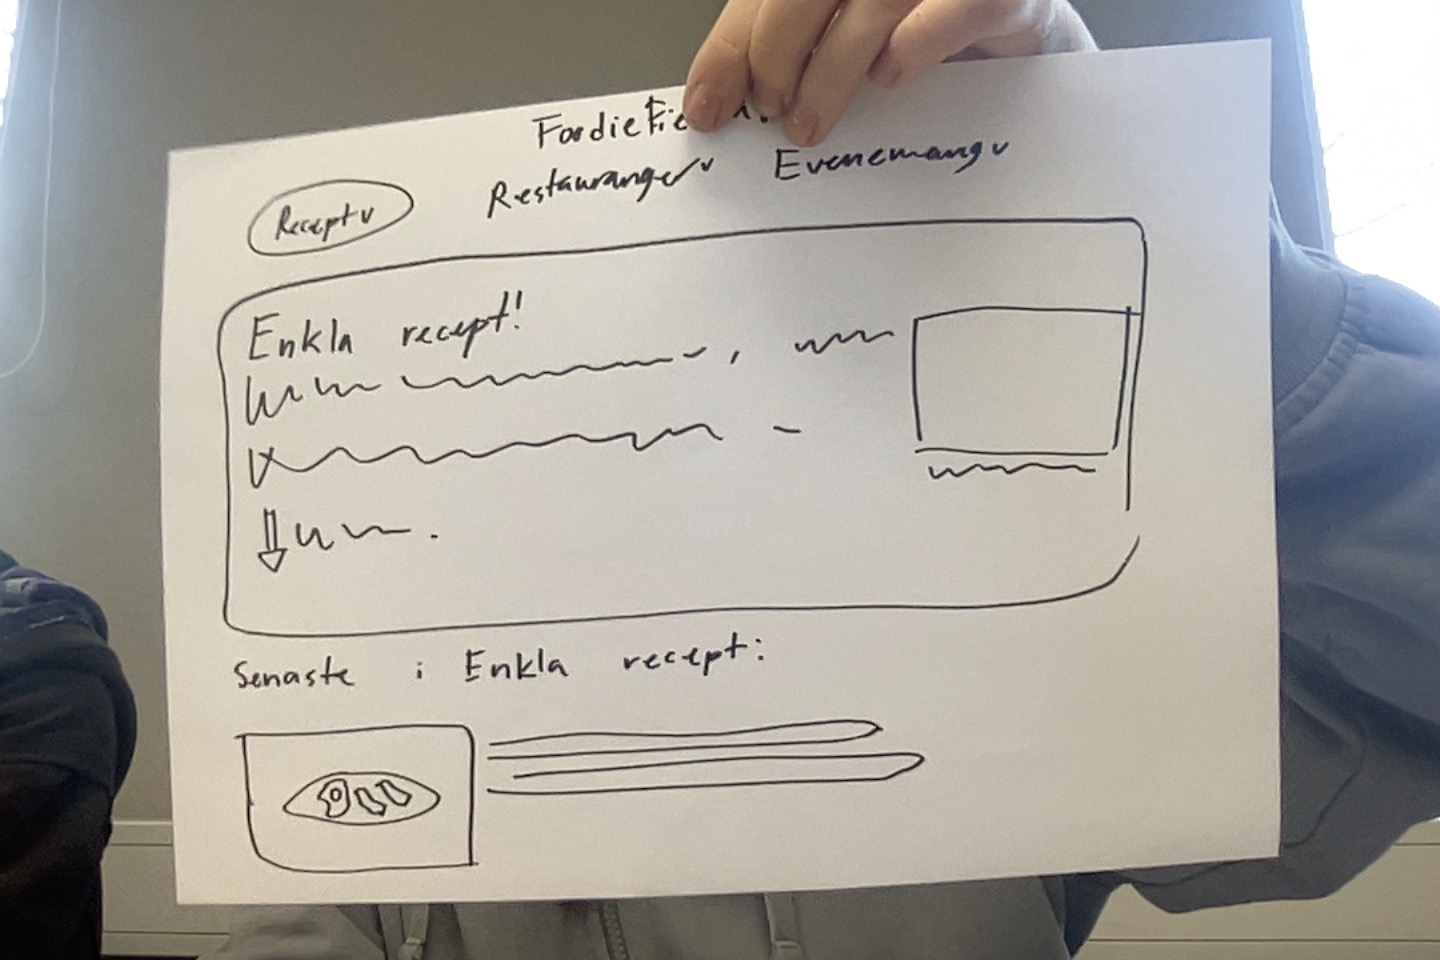 Recept v
Restauranger v
Evenemang v
Enkla recept!
Senaste i Enkla recept: